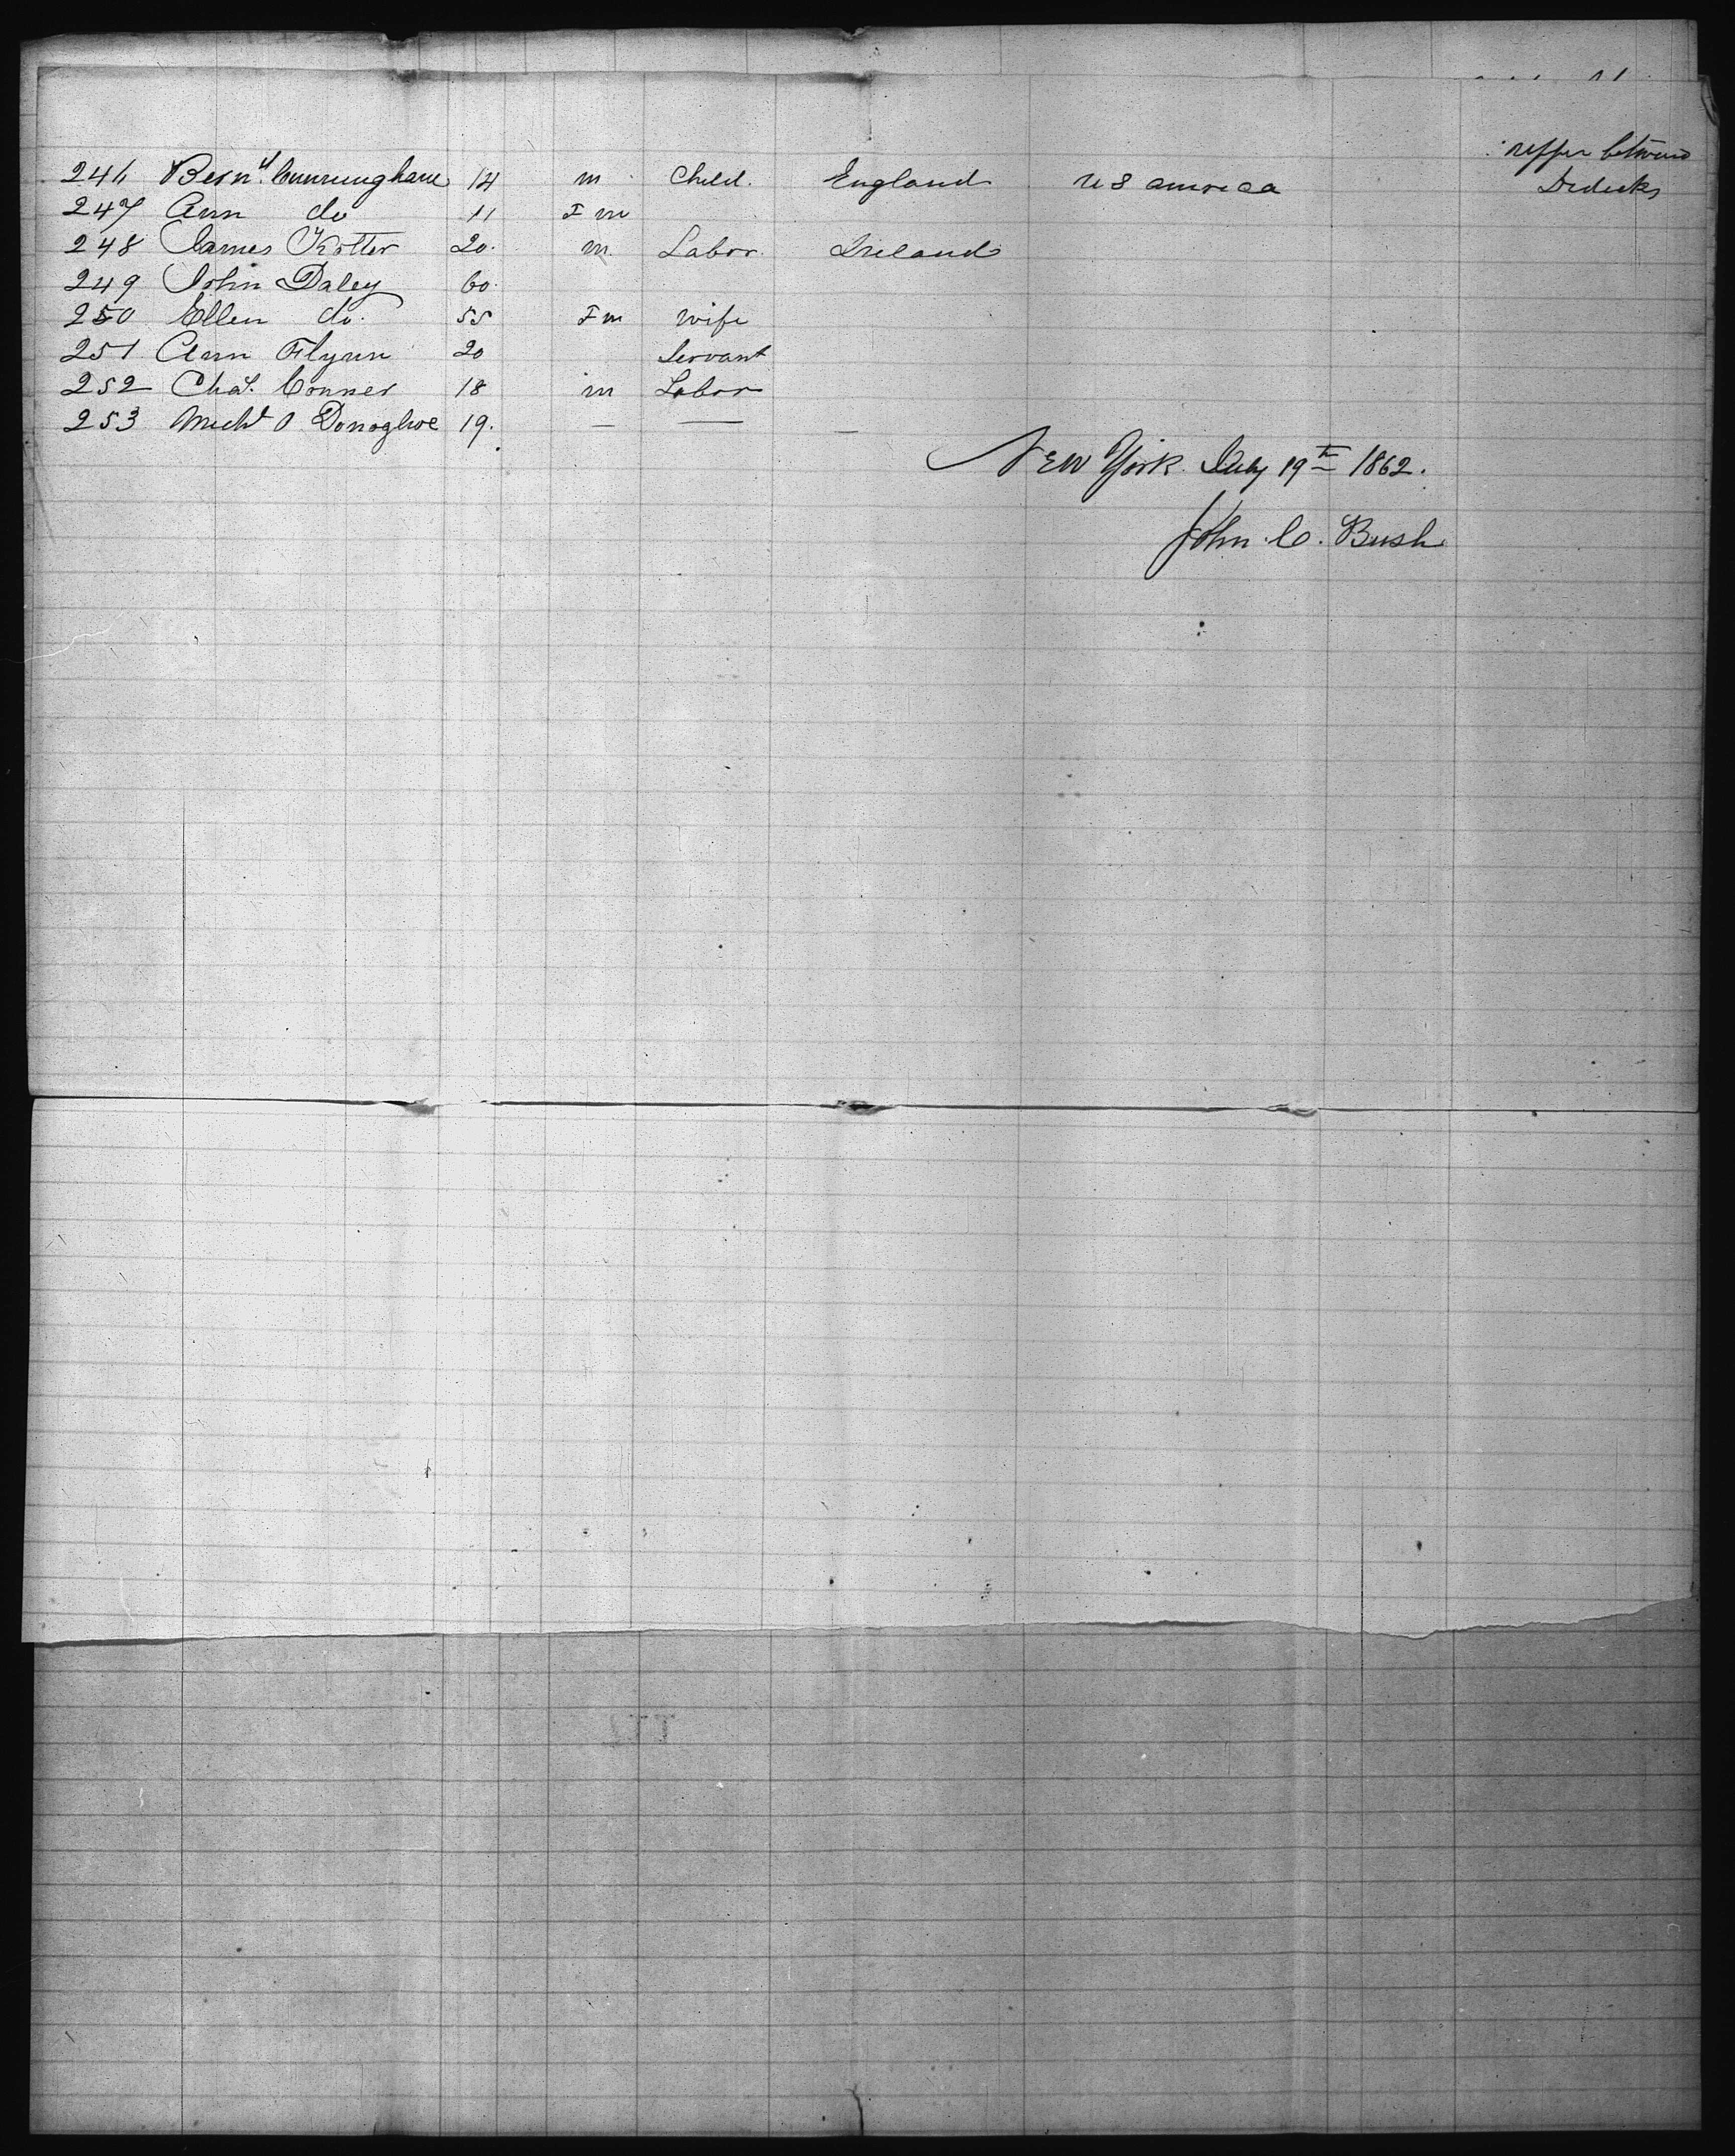 upper betweed
246 Bern'd Cunningham 14 m Child. England U S America Dedecks
247 Ann do 11 Fm
248 James Kotter 20. m. Labor. Ireland
249 John Daley 60.
250 Ellen do. 55 Fm wife
251 Ann Flynn 20 Servant
252 Chas. Conner 18 m Labor
253 Michl O Donoghoe 19. — — —
New York July 19th 1862.
John C. Bush